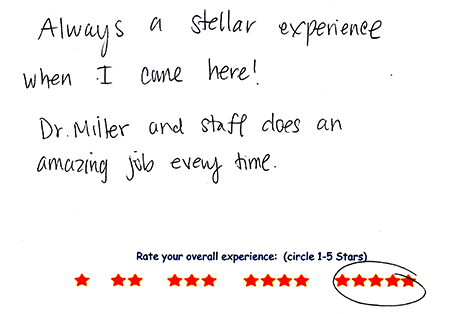 Always a stellar experience
when I came here!
Dr. Miller and staff does an
amazing job every time.
Rate your overall experience: (circle 1-5 Stars)